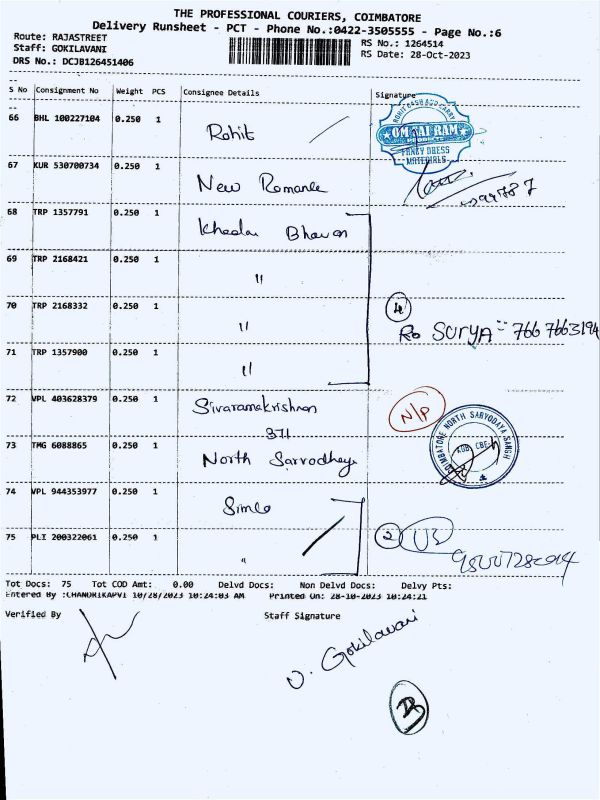 THE PROFESSIONAL COURIERS, COIMBATORE
Delivery Runsheet - PCT - Phone No.:0422-3505555 - Page No.:6
Route: RAJASTREET
RS No.: 1264514
Staff: GOKILAVANI
RS Date: 28-Oct-2023
DRS No.: DCJB126451406
S No Consignment No Weight PCS Consignee Details Signature
66 BHL 100227104 0.250 1 Rohit
ROHIT CASH AND CARRY
OM SAI RAM
FANCY DRESS
MATERIALS
67 KUR 530700734 0.250 1 New Romance
68 TRP 1357791 0.250 1 Khadai Bhavan
69 TRP 2168421 0.250 1 "
70 TRP 2168332 0.250 1 " 4
Surya - 7667663194
71 TRP 1357900 0.250 1 "
72 VPL 403628379 0.250 1 Sivaramakrishnan N/P
371
73 TMG 6088865 0.250 1 North Sarvodhaya
COIMBATORE NORTH SARVODAYA SANGH
74 VPL 944353977 0.250 1 Simla
75 PLI 200322061 0.250 1 " 2
Tot Docs: 75 Tot COD Amt: 0.00 Delvd Docs: Non Delvd Docs: Delvy Pts:
Entered By :CHANDRIKAPVI 10/28/2023 10:24:03 AM Printed On: 28-10-2023 10:24:21
Verified By Staff Signature
V. Gokilavani